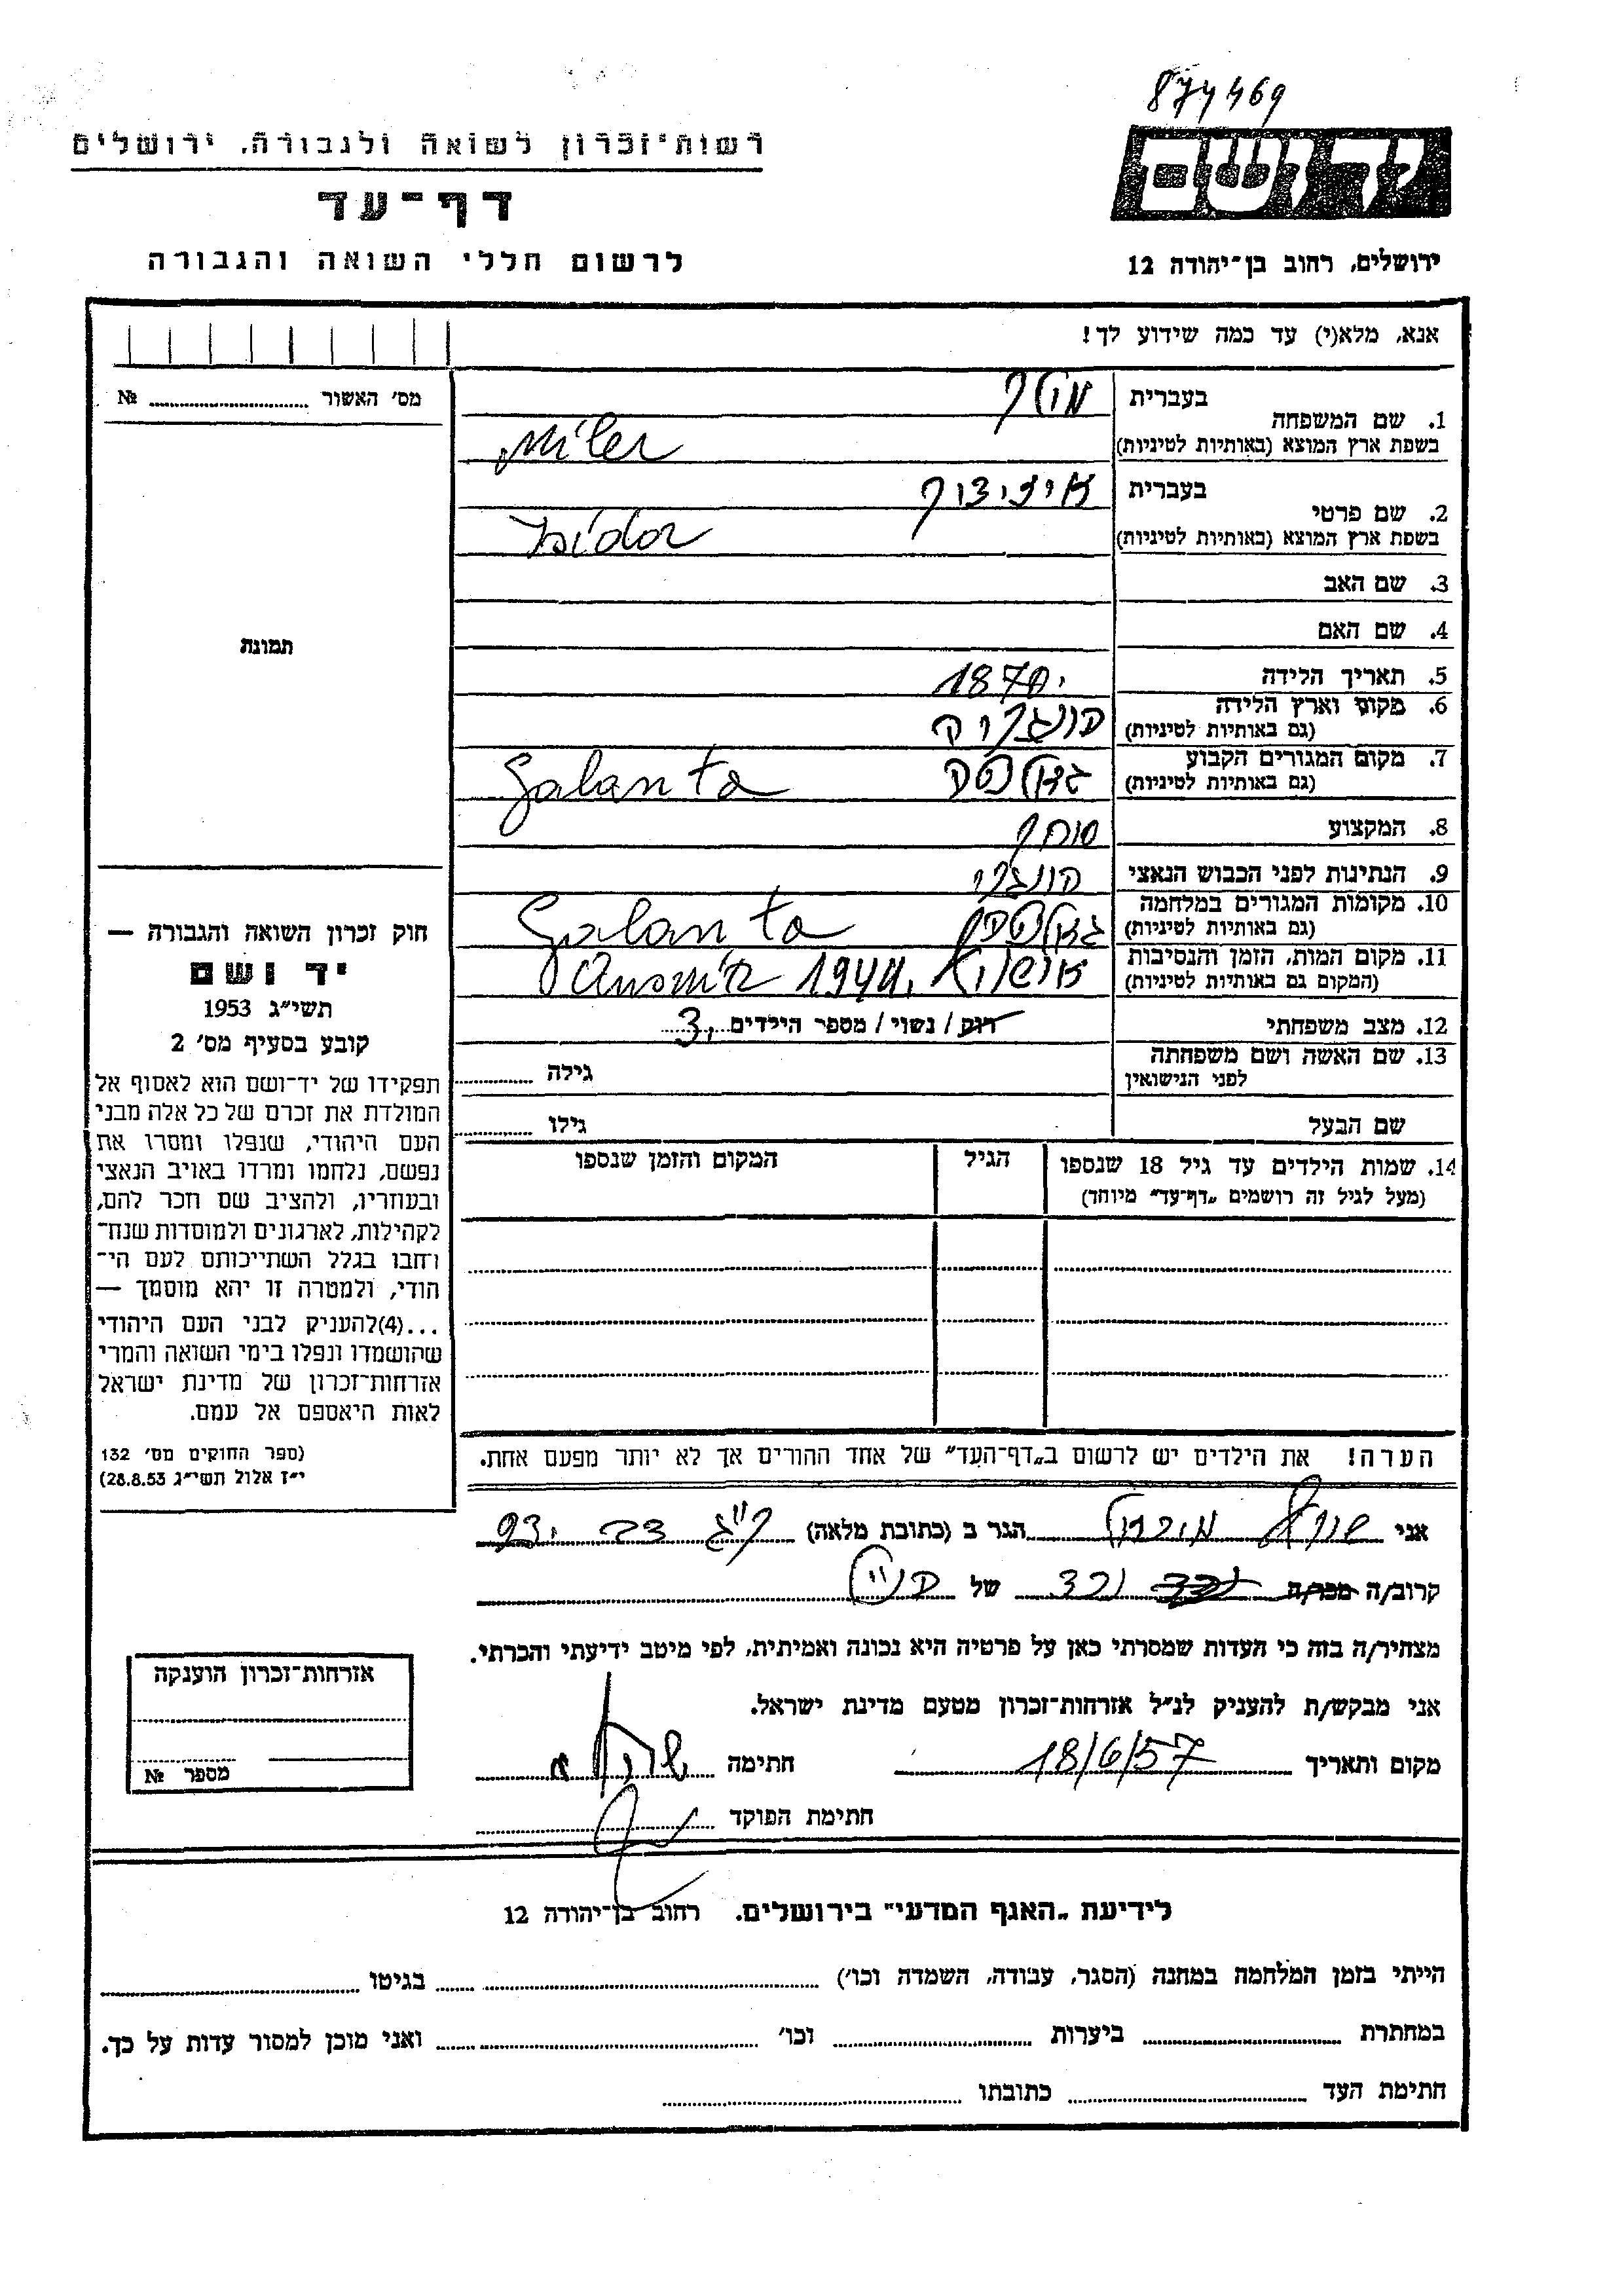 874469
יד ושם
רשות־זכרון לשואה ולגבורה, ירושלים
דף־עד
לרשום חללי השואה והגבורה
ירושלים, רחוב בן־יהודה 12
אנא, מלא(י) עד כמה שידוע לך!
מס׳ האשור № 
1. שם המשפחה
בעברית
בשפת ארץ המוצא (באותיות לטיניות) Miler
2. שם פרטי
בעברית איזידור
בשפת ארץ המוצא (באותיות לטיניות) Isidor
3. שם האב
4. שם האם
תמונה
5. תאריך הלידה 1870
6. מקום וארץ הלידה הונגריה
(גם באותיות לטיניות)
7. מקום המגורים הקבוע גאלנטה Galanta
(גם באותיות לטיניות)
8. המקצוע סוחר
9. הנתינות לפני הכבוש הנאצי הונגרי
10. מקומות המגורים במלחמה גאלנטה Galanta
(גם באותיות לטיניות)
11. מקום המות, הזמן והנסיבות אושויץ 1944.
(המקום גם באותיות לטיניות)
12. מצב משפחתי רוק / נשוי / מספר הילדים 3.
13. שם האשה ושם משפחתה
לפני הנישואין
גילה
שם הבעל
גילו
14. שמות הילדים עד גיל 18 שנספו
(מעל לגיל זה רושמים „דף־עד״ מיוחד)
הגיל
המקום והזמן שנספו
חוק זכרון השואה והגבורה —
יד ושם
תשי״ג 1953
קובע בסעיף מס׳ 2
תפקידו של יד־ושם הוא לאסוף אל
המולדת את זכרם של כל אלה מבני
העם היהודי, שנפלו ומסרו את
נפשם, נלחמו ומרדו באויב הנאצי
ובעוזריו, ולהציב שם וזכר להם,
לקהילות, לארגונים ולמוסדות שנח־
רבו בגלל השתייכותם לעם הי־
הודי, ולמטרה זו יהא מוסמך —
...(4)להעניק לבני העם היהודי
שהושמדו ונפלו בימי השואה והמרי
אזרחות־זכרון של מדינת ישראל
לאות היאספם אל עמם.
(ספר החוקים מס׳ 132
י״ז אלול תשי״ג 28.8.53)
הערה! את הילדים יש לרשום ב„דף־העד״ של אחד ההורים אך לא יותר מפעם אחת.
אני הגר ב (כתובת מלאה)
קרוב/ה מכר/ה נכד של הנ״ל
מצהיר/ה בזה כי העדות שמסרתי כאן על פרטיה היא נכונה ואמיתית, לפי מיטב ידיעתי והכרתי.
אני מבקש/ת להעניק לנ״ל אזרחות־זכרון מטעם מדינת ישראל.
מקום ותאריך 18/6/57 חתימה
חתימת הפוקד
אזרחות־זכרון הוענקה
מספר №
לידיעת „האגף המדעי״ בירושלים. רחוב בן־יהודה 12
הייתי בזמן המלחמה במחנה (הסגר, עבודה, השמדה וכו׳) בגיטו
במחתרת ביערות וכו׳ ואני מוכן למסור עדות על כך.
חתימת העד כתובתו